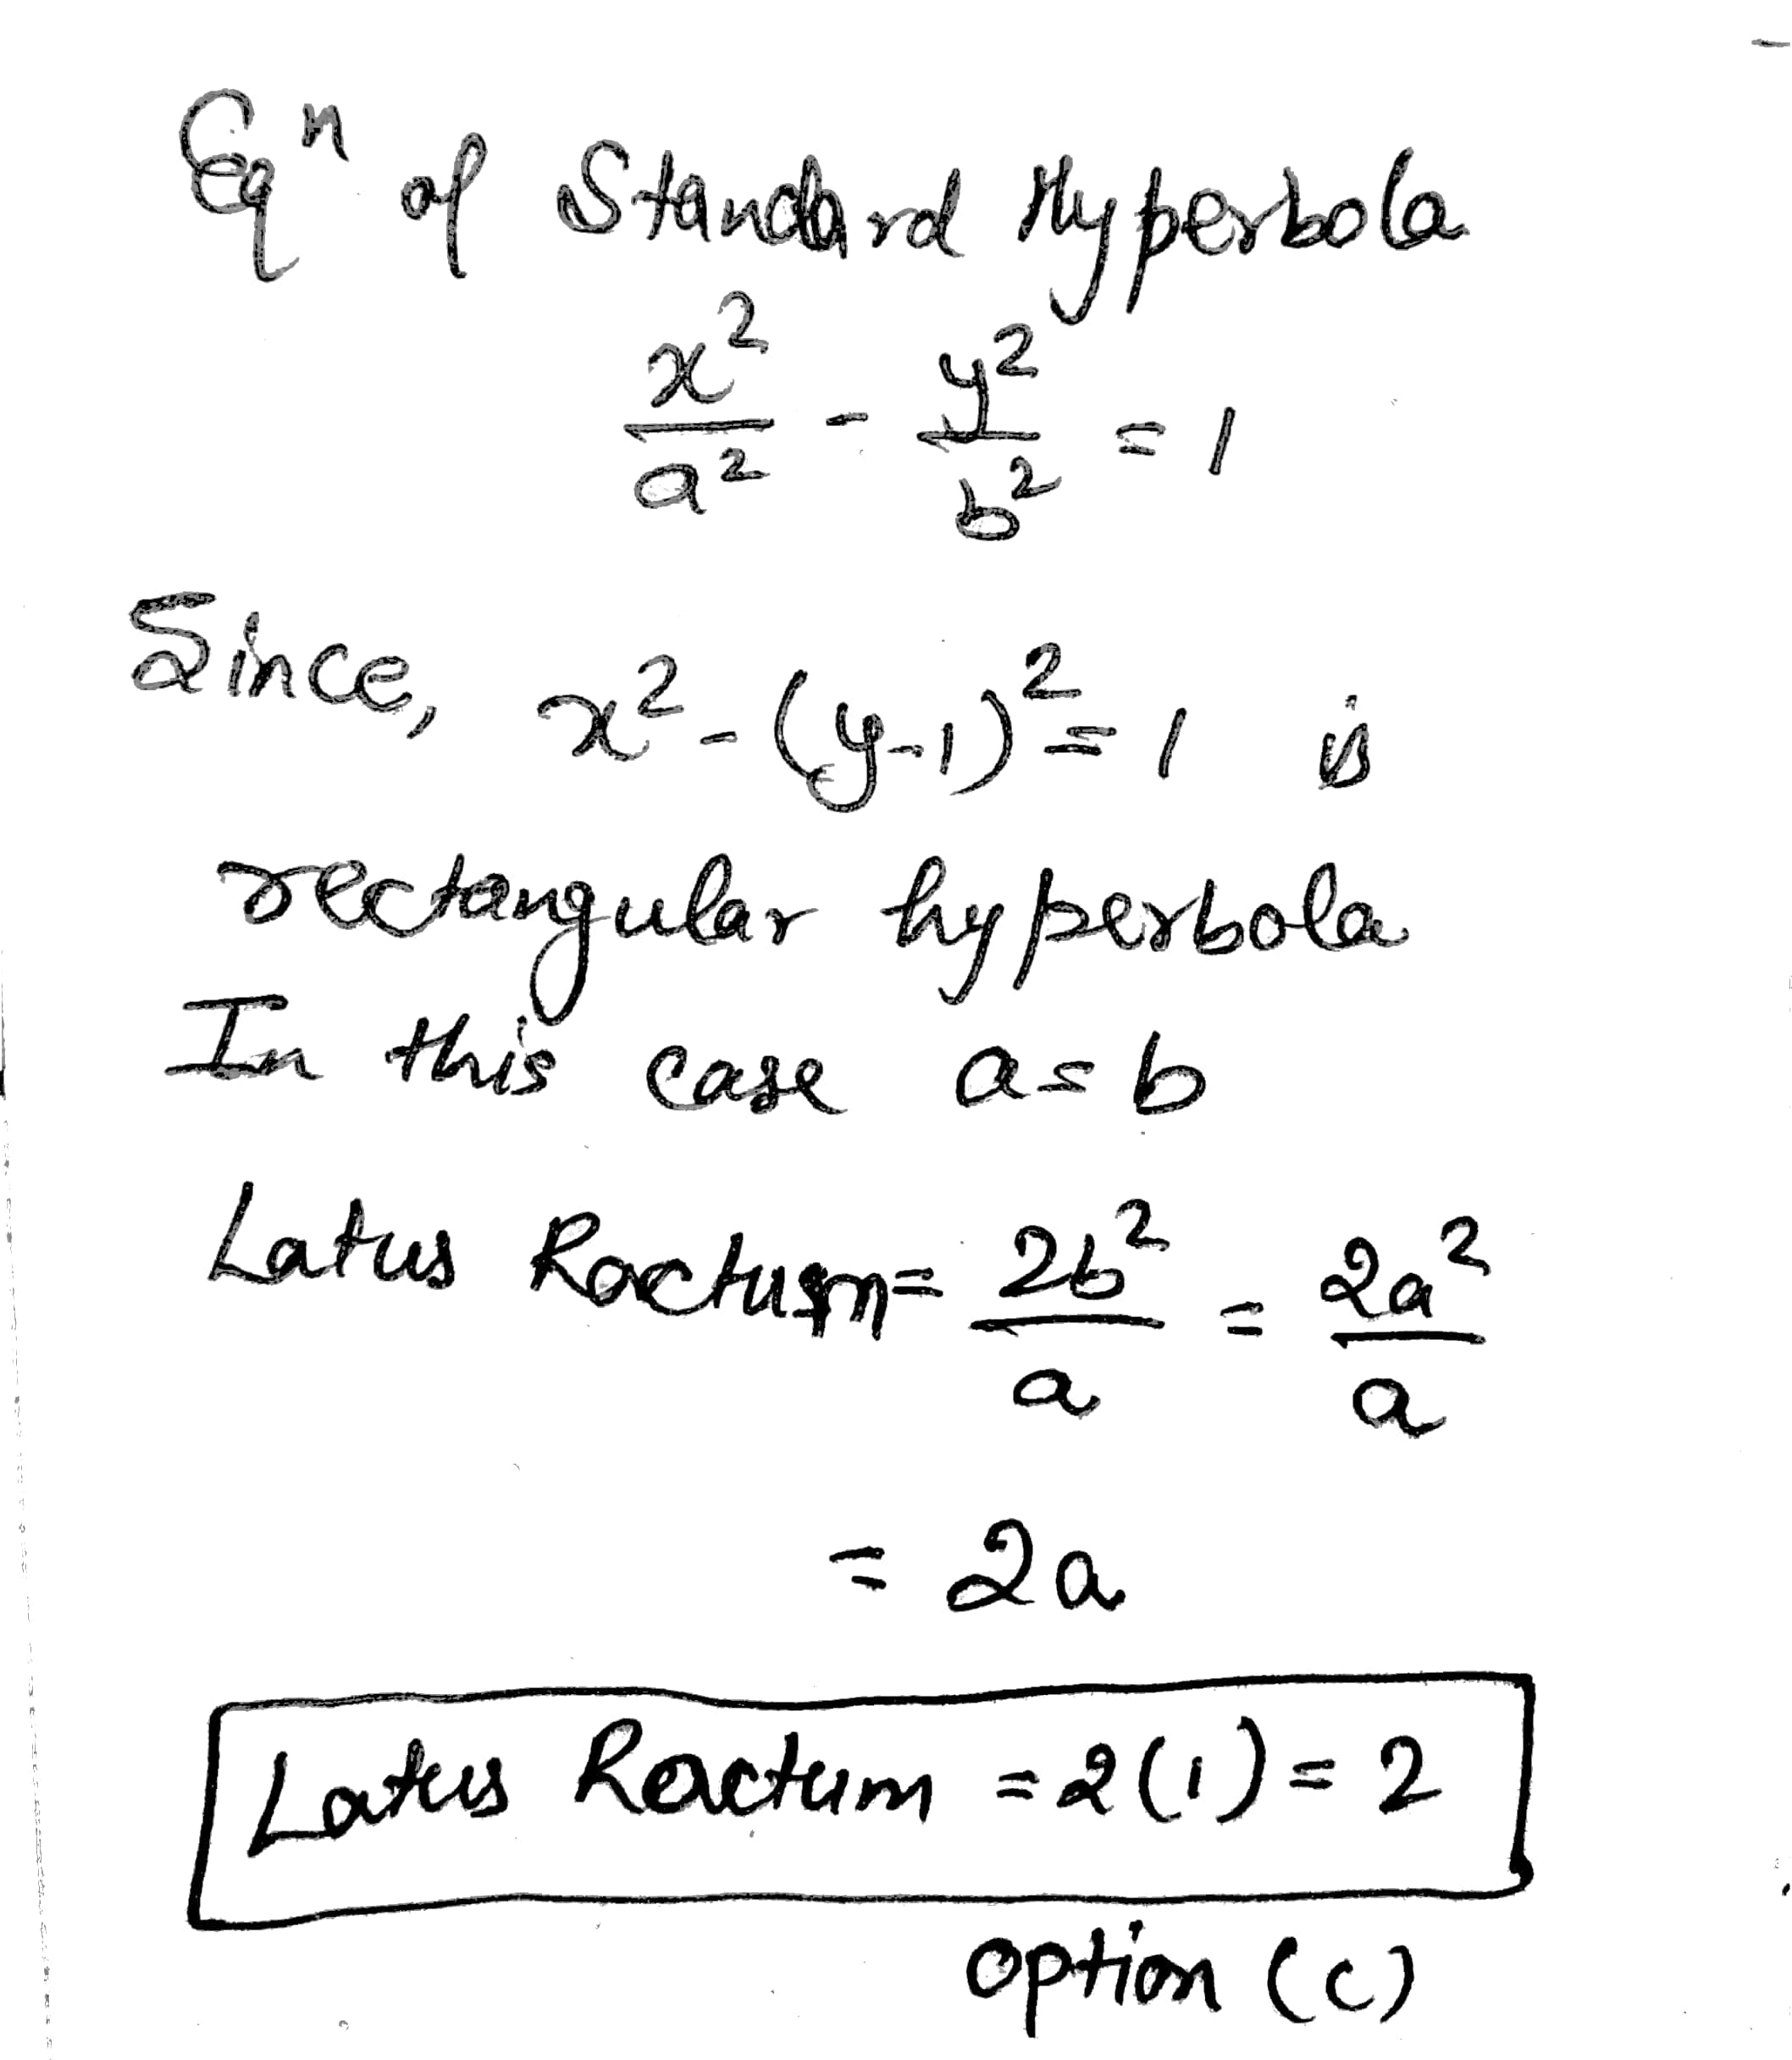 Eqⁿ of Standard Hyperbola
x²/a² - y²/b² = 1
Since, x² - (y-1)² = 1 is
rectangular hyperbola
In this case a = b
Latus Ractum = 2b²/a = 2a²/a
= 2a
Latus Ractum = 2(1) = 2
option (c)